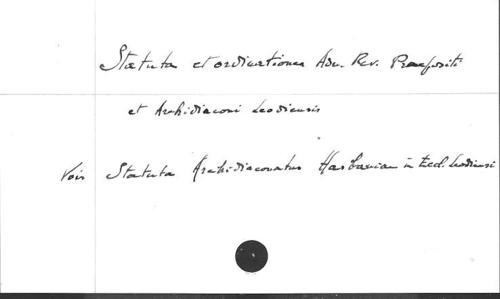 Statuta et ordinationes Adm. Rev. Praepositi
et Archidiaconi Leodiensis
Voir Statuta Archidiaconatus Hasbaniae in Eccl. Leodiensi